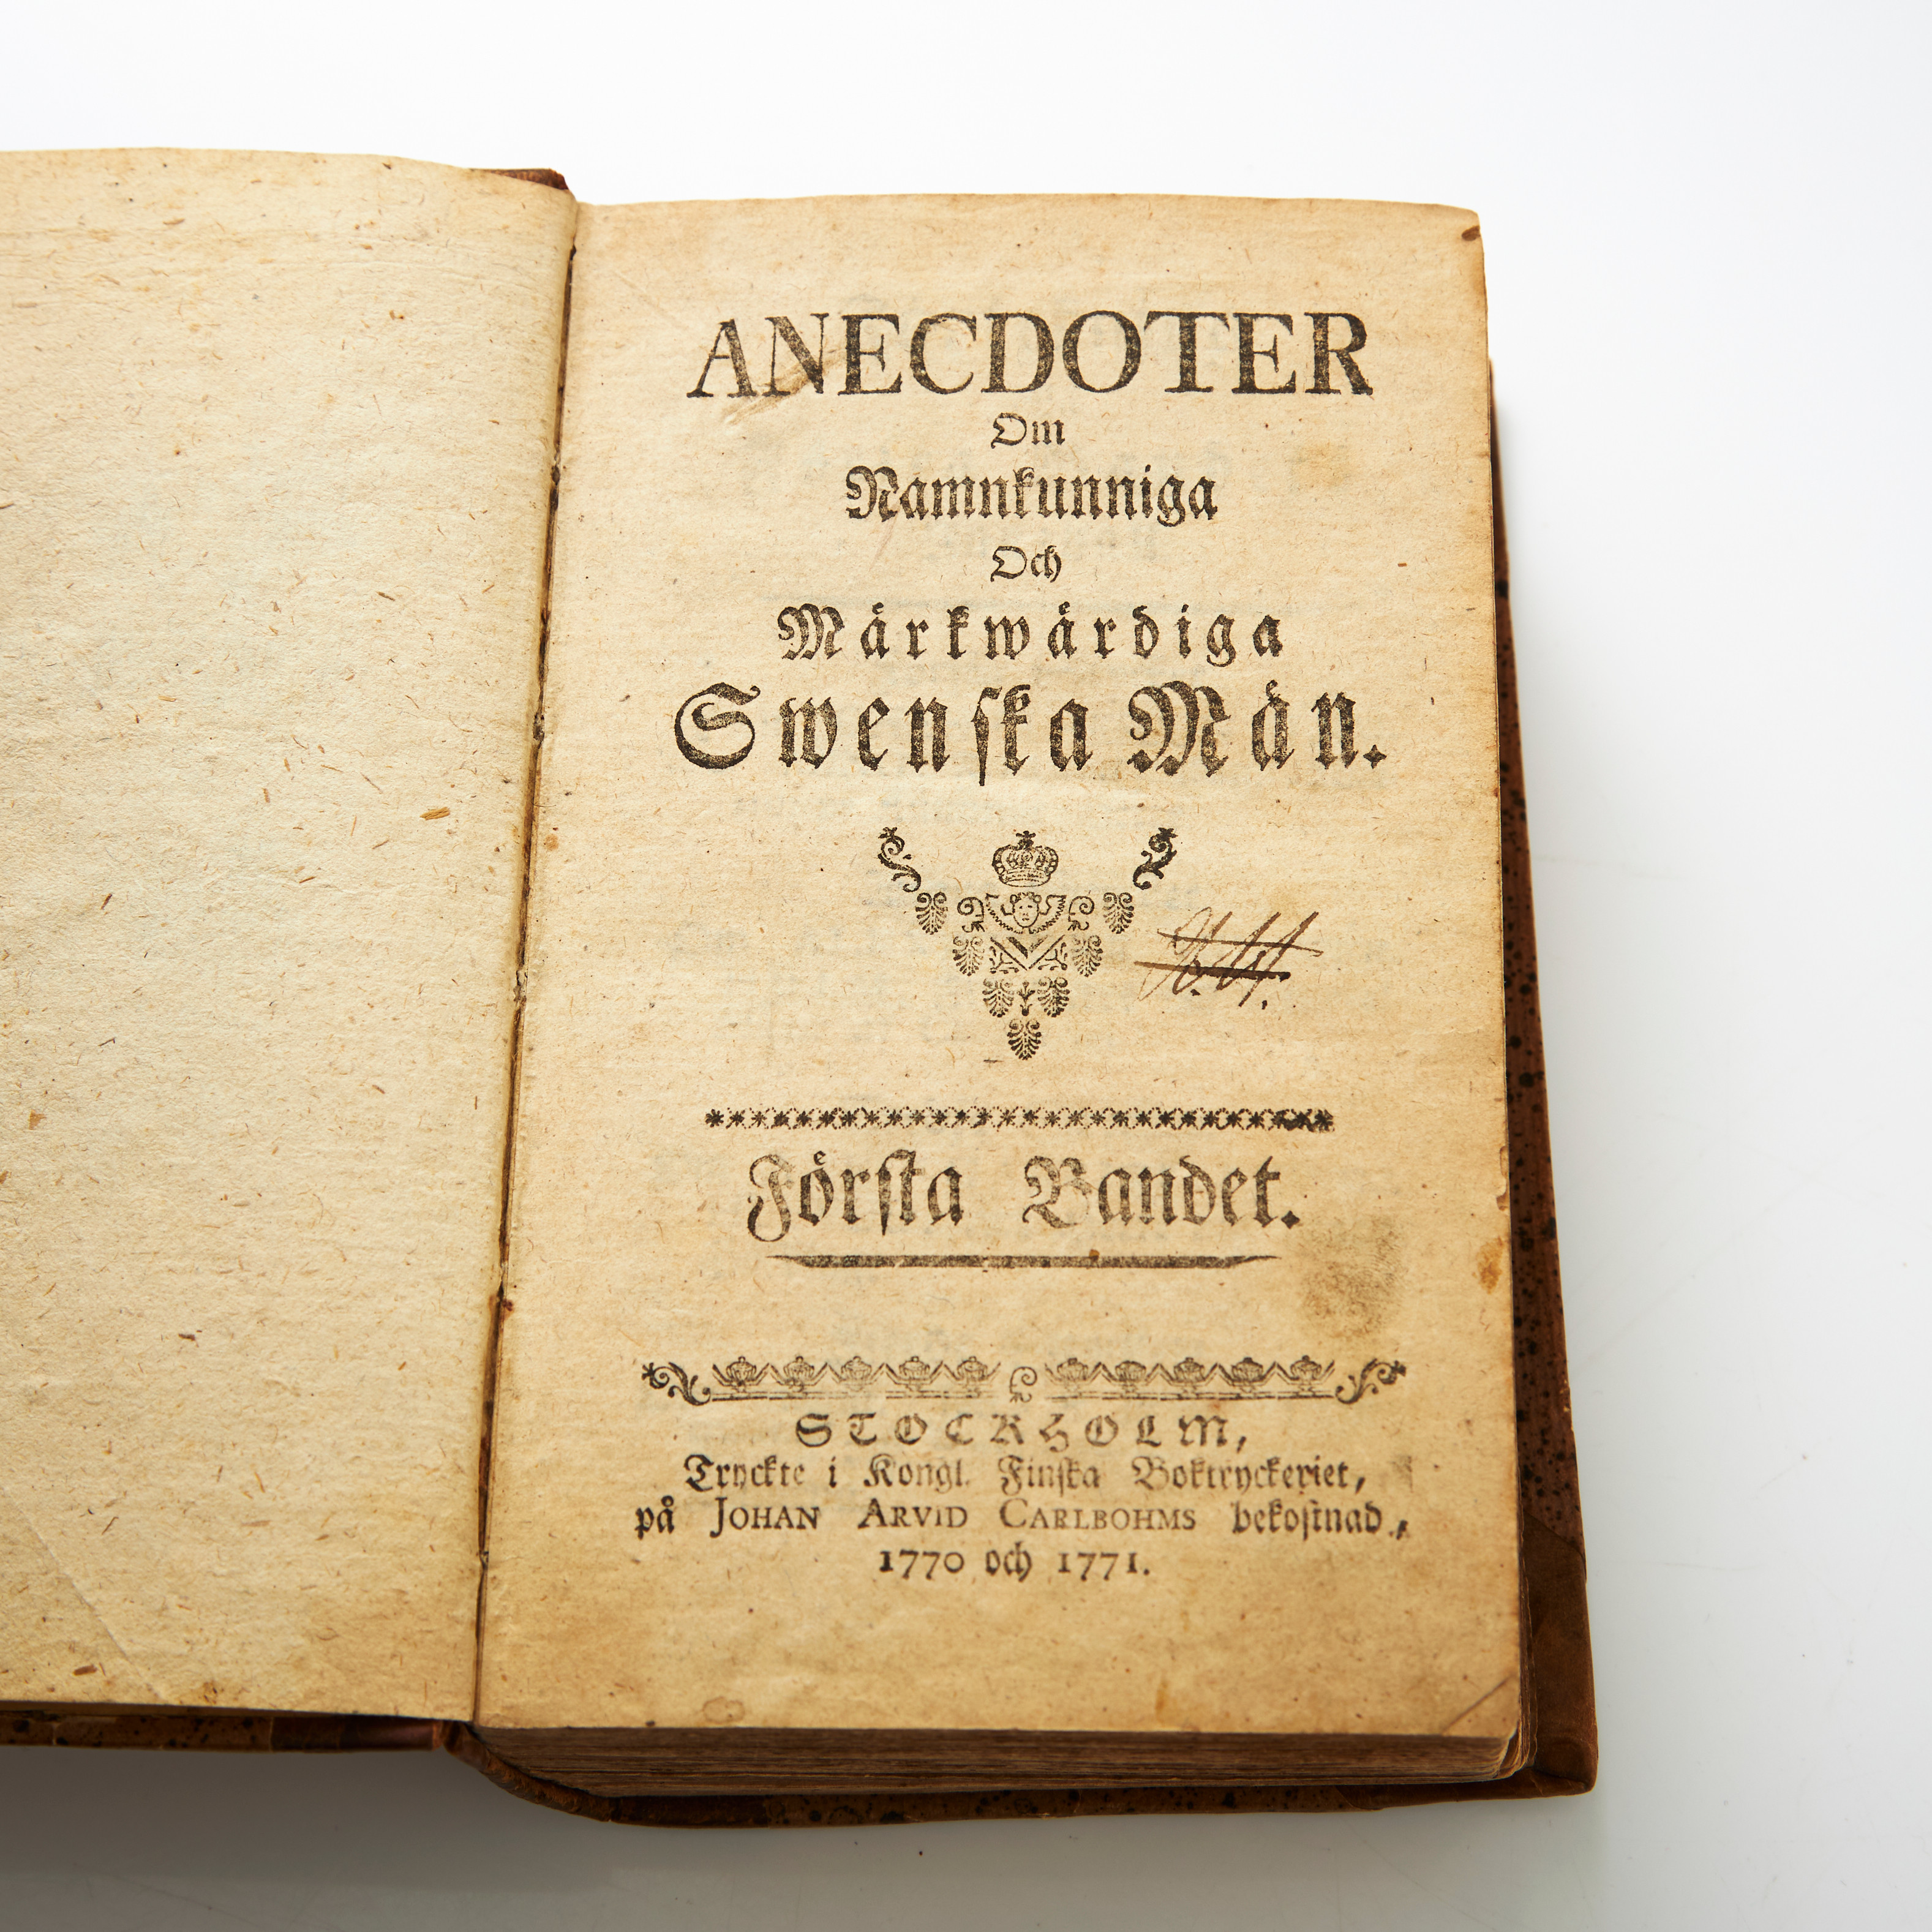 ANECDOTER
Om
Namnkunniga
Och
Märkwärdiga
Swenska Män.
Första Bandet.
STOCKHOLM,
Tryckte i Kongl. Finska Boktryckeriet,
på JOHAN ARVID CARLBOHMS bekostnad,
1770 och 1771.